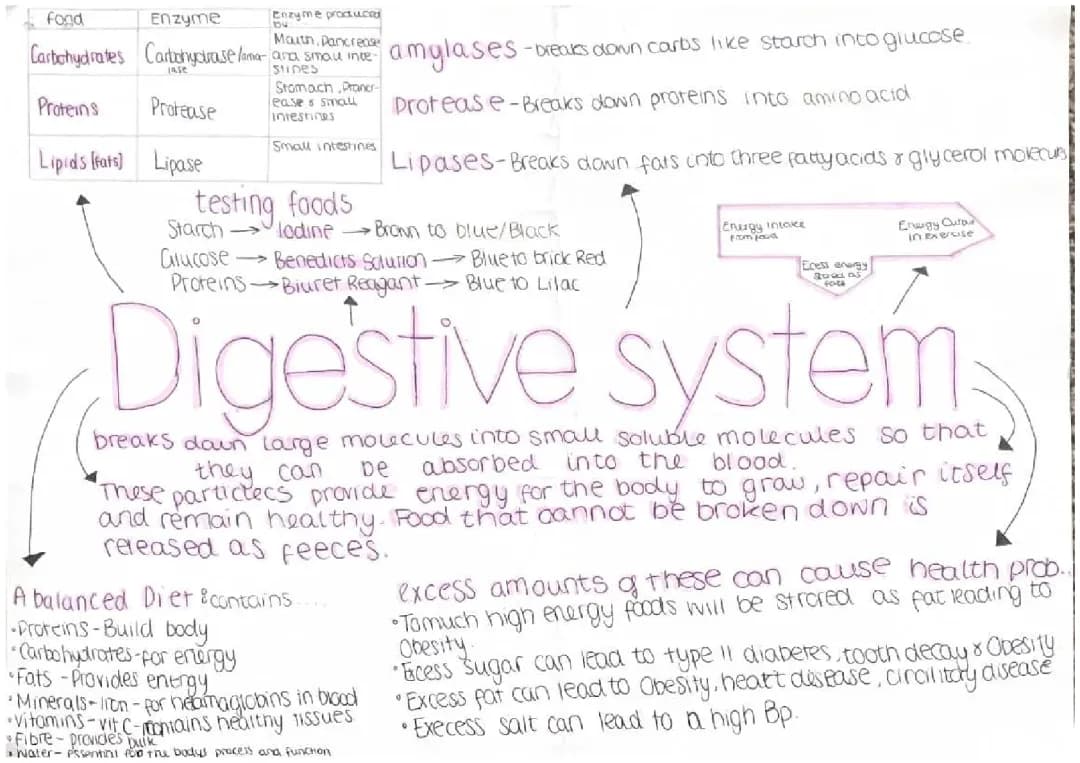 Food Enzyme Enzyme produced by
Carbohydrates Carbohydrase/amalase Mouth, Pancrease and small intestines
Proteins Protease Stomach, Pancrease & small intestines
Lipids (fats) Lipase Small intestines
amylases - breaks down carbs like starch into glucose.
Protease - Breaks down proteins into amino acid
Lipases - Breaks down fats into three fatty acids & glycerol molecus
testing foods
Starch → Iodine → Brown to blue/Black
Glucose → Benedicts Solution → Blue to brick Red
Proteins → Biuret Reagant → Blue to Lilac
Energy Intake
from food
Energy Output
in Exercise
Ecess energy
stored as
fats
Digestive system
breaks down large molecules into small soluble molecules so that
they can be absorbed into the blood.
These particlecs provide energy for the body to grow, repair itself
and remain healthy. Food that cannot be broken down is
released as feeces.
A balanced Diet contains....
•Proteins - Build body
•Carbohydrates - for energy
•Fats - Provides energy
•Minerals - Iron - for heamaglobins in blood
•vitamins - vit C - maintains healthy tissues
•Fibre - provides bulk
•Water - essential for the bodys process and function
excess amounts of these can cause health prob..
•Tomuch high energy foods will be strored as fat leading to
Obesity.
•Ecess sugar can lead to type II diabetes, tooth decay & Obesity
•Excess fat can lead to Obesity, heart disease, circulitory disease
•Execess salt can lead to a high Bp.